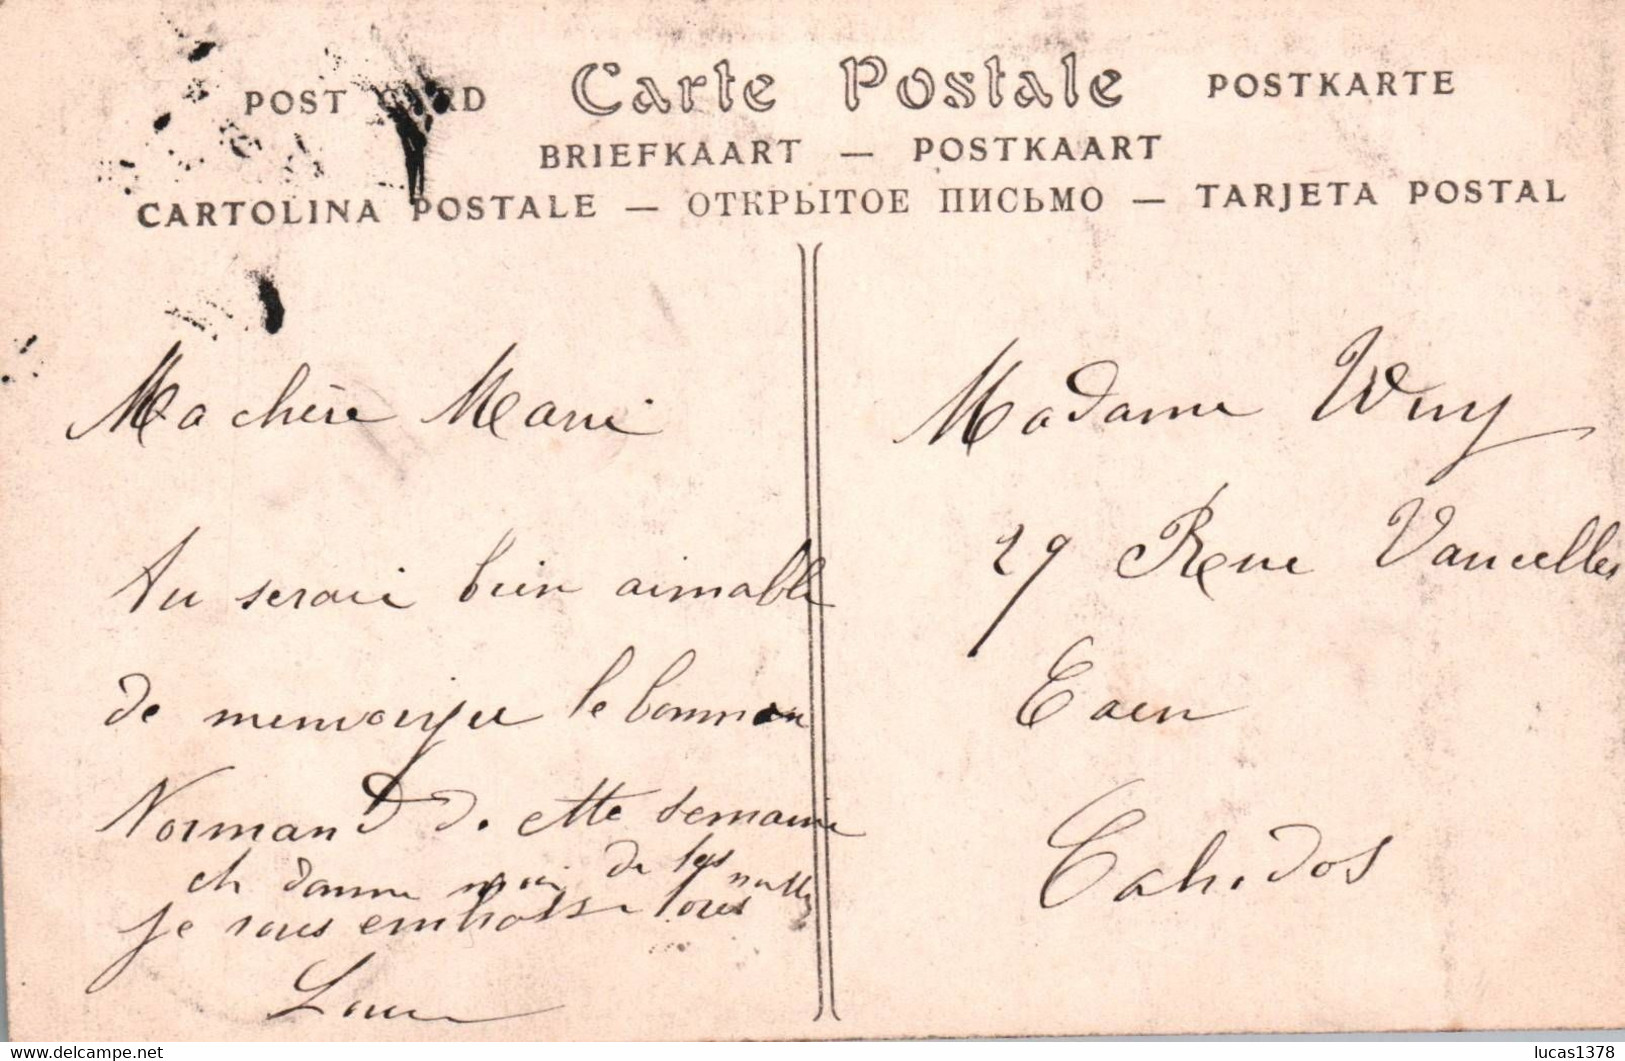 POST CARD Carte Postale POSTKARTE
BRIEFKAART — POSTKAART
CARTOLINA POSTALE — ОТКРЫТОЕ ПИСЬМО — TARJETA POSTAL
Ma chère Marie
Tu serais bien aimable
de menvoiyer le bonmen
Normand d. cette semaine
et donne moi de tes nouvelles
je vous embrasse tous
Louis
Madame Wuy
29 Rue Vaucelles
Caen
Calv.dos
lucas1378